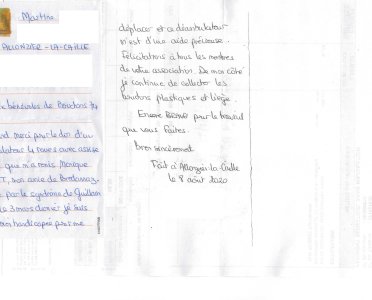 Martine
ALLONZIER-LA-CAILLE
bénévoles de Bouchons 74
merci pour le don d'un
4 roues avec assise
que m'a remis Monique
T, mon amie de
par le syndrome de Guillain
3 mars dernier je suis
handicapée pour me
déplacer et ce déambulateur
m'est d'une aide précieuse.
Félicitations à tous les membres
de votre association. De mon côté
je continue de collecter les
bouchons plastiques et liège
Encore BRAVO pour le travail
que vous faites.
Bien sincèrement
Fait à Allonzier-la-Caille
le 8 août 2020